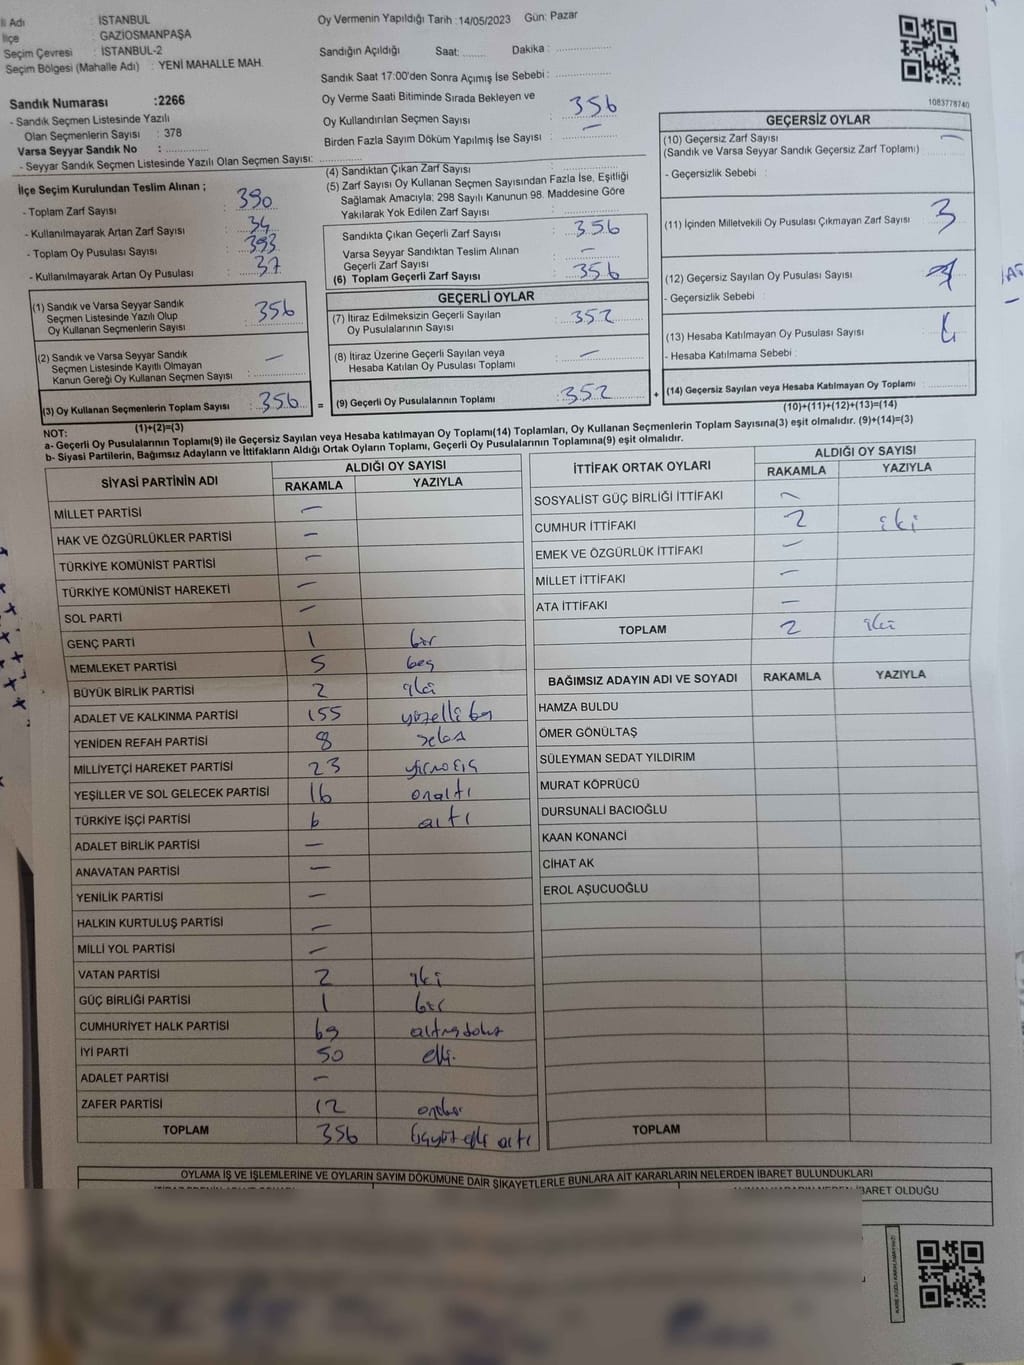 İli Adı : İSTANBUL
İlçe : GAZİOSMANPAŞA
Seçim Çevresi : İSTANBUL-2
Seçim Bölgesi (Mahalle Adı) : YENİ MAHALLE MAH.
Sandık Numarası :2266
- Sandık Seçmen Listesinde Yazılı
Olan Seçmenlerin Sayısı : 378
Varsa Seyyar Sandık No :
- Seyyar Sandık Seçmen Listesinde Yazılı Olan Seçmen Sayısı:
Oy Vermenin Yapıldığı Tarih :14/05/2023 Gün: Pazar
Sandığın Açıldığı Saat: Dakika :
Sandık Saat 17:00'den Sonra Açımış İse Sebebi :
Oy Verme Saati Bitiminde Sırada Bekleyen ve
Oy Kullandırılan Seçmen Sayısı : 356
Birden Fazla Sayım Döküm Yapılmış İse Sayısı : –
1083778740
İlçe Seçim Kurulundan Teslim Alınan ;
- Toplam Zarf Sayısı : 390
- Kullanılmayarak Artan Zarf Sayısı : 34
- Toplam Oy Pusulası Sayısı : 393
- Kullanılmayarak Artan Oy Pusulası : 37
(1) Sandık ve Varsa Seyyar Sandık
Seçmen Listesinde Yazılı Olup
Oy Kullanan Seçmenlerin Sayısı : 356
(2) Sandık ve Varsa Seyyar Sandık
Seçmen Listesinde Kayıtlı Olmayan
Kanun Gereği Oy Kullanan Seçmen Sayısı : –
(3) Oy Kullanan Seçmenlerin Toplam Sayısı : 356
(1)+(2)=(3)
(4) Sandıktan Çıkan Zarf Sayısı :
(5) Zarf Sayısı Oy Kullanan Seçmen Sayısından Fazla İse, Eşitliği
Sağlamak Amacıyla; 298 Sayılı Kanunun 98. Maddesine Göre
Yakılarak Yok Edilen Zarf Sayısı :
Sandıkta Çıkan Geçerli Zarf Sayısı : 356
Varsa Seyyar Sandıktan Teslim Alınan
Geçerli Zarf Sayısı : –
(6) Toplam Geçerli Zarf Sayısı : 356
GEÇERLİ OYLAR
(7) İtiraz Edilmeksizin Geçerli Sayılan
Oy Pusulalarının Sayısı : 352
(8) İtiraz Üzerine Geçerli Sayılan veya
Hesaba Katılan Oy Pusulası Toplamı : –
= (9) Geçerli Oy Pusulalarının Toplamı : 352 +
GEÇERSİZ OYLAR
(10) Geçersiz Zarf Sayısı : –
(Sandık ve Varsa Seyyar Sandık Geçersiz Zarf Toplamı)
- Geçersizlik Sebebi :
(11) İçinden Milletvekili Oy Pusulası Çıkmayan Zarf Sayısı : 3
(12) Geçersiz Sayılan Oy Pusulası Sayısı :
- Geçersizlik Sebebi :
(13) Hesaba Katılmayan Oy Pusulası Sayısı :
- Hesaba Katılmama Sebebi :
(14) Geçersiz Sayılan veya Hesaba Katılmayan Oy Toplamı :
(10)+(11)+(12)+(13)=(14)
NOT:
a- Geçerli Oy Pusulalarının Toplamı(9) ile Geçersiz Sayılan veya Hesaba katılmayan Oy Toplamı(14) Toplamları, Oy Kullanan Seçmenlerin Toplam Sayısına(3) eşit olmalıdır. (9)+(14)=(3)
b- Siyasi Partilerin, Bağımsız Adayların ve İttifakların Aldığı Ortak Oyların Toplamı, Geçerli Oy Pusulalarının Toplamına(9) eşit olmalıdır.
SİYASİ PARTİNİN ADI ALDIĞI OY SAYISI
RAKAMLA YAZIYLA
MİLLET PARTİSİ –
HAK VE ÖZGÜRLÜKLER PARTİSİ –
TÜRKİYE KOMÜNİST PARTİSİ –
TÜRKİYE KOMÜNİST HAREKETİ –
SOL PARTİ –
GENÇ PARTİ 1 bir
MEMLEKET PARTİSİ 5 beş
BÜYÜK BİRLİK PARTİSİ 2 iki
ADALET VE KALKINMA PARTİSİ 155 yüzelli beş
YENİDEN REFAH PARTİSİ 8 sekiz
MİLLİYETÇİ HAREKET PARTİSİ 23 yirmiüç
YEŞİLLER VE SOL GELECEK PARTİSİ 16 onaltı
TÜRKİYE İŞÇİ PARTİSİ 6 altı
ADALET BİRLİK PARTİSİ –
ANAVATAN PARTİSİ –
YENİLİK PARTİSİ –
HALKIN KURTULUŞ PARTİSİ –
MİLLİ YOL PARTİSİ –
VATAN PARTİSİ 2 iki
GÜÇ BİRLİĞİ PARTİSİ 1 bir
CUMHURİYET HALK PARTİSİ 69 altmışdokuz
İYİ PARTİ 50 elli
ADALET PARTİSİ –
ZAFER PARTİSİ 12 oniki
TOPLAM 356 üçyüz elli altı
İTTİFAK ORTAK OYLARI ALDIĞI OY SAYISI
RAKAMLA YAZIYLA
SOSYALİST GÜÇ BİRLİĞİ İTTİFAKI –
CUMHUR İTTİFAKI 2 iki
EMEK VE ÖZGÜRLÜK İTTİFAKI –
MİLLET İTTİFAKI –
ATA İTTİFAKI –
TOPLAM 2 iki
BAĞIMSIZ ADAYIN ADI VE SOYADI RAKAMLA YAZIYLA
HAMZA BULDU
ÖMER GÖNÜLTAŞ
SÜLEYMAN SEDAT YILDIRIM
MURAT KÖPRÜCÜ
DURSUNALİ BACIOĞLU
KAAN KONANCİ
CİHAT AK
EROL AŞUCUOĞLU
TOPLAM
OYLAMA İŞ VE İŞLEMLERİNE VE OYLARIN SAYIM DÖKÜMÜNE DAİR ŞİKAYETLERLE BUNLARA AİT KARARLARIN NELERDEN İBARET BULUNDUKLARI
İBARET OLDUĞU